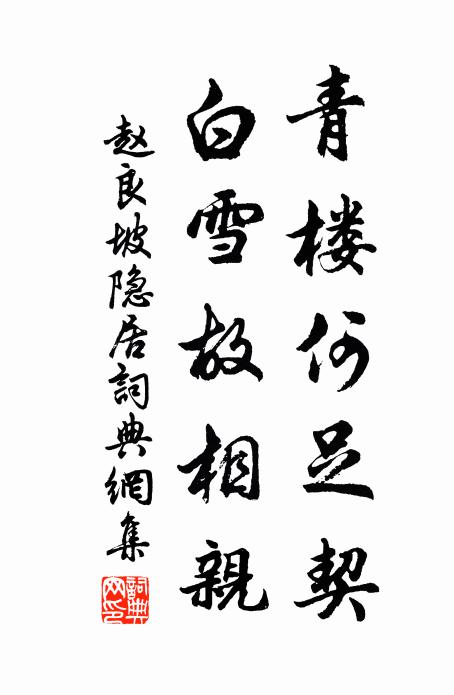 青楼何足契
白雪故相親
赵良坡隐居詞典網集
詞典网印